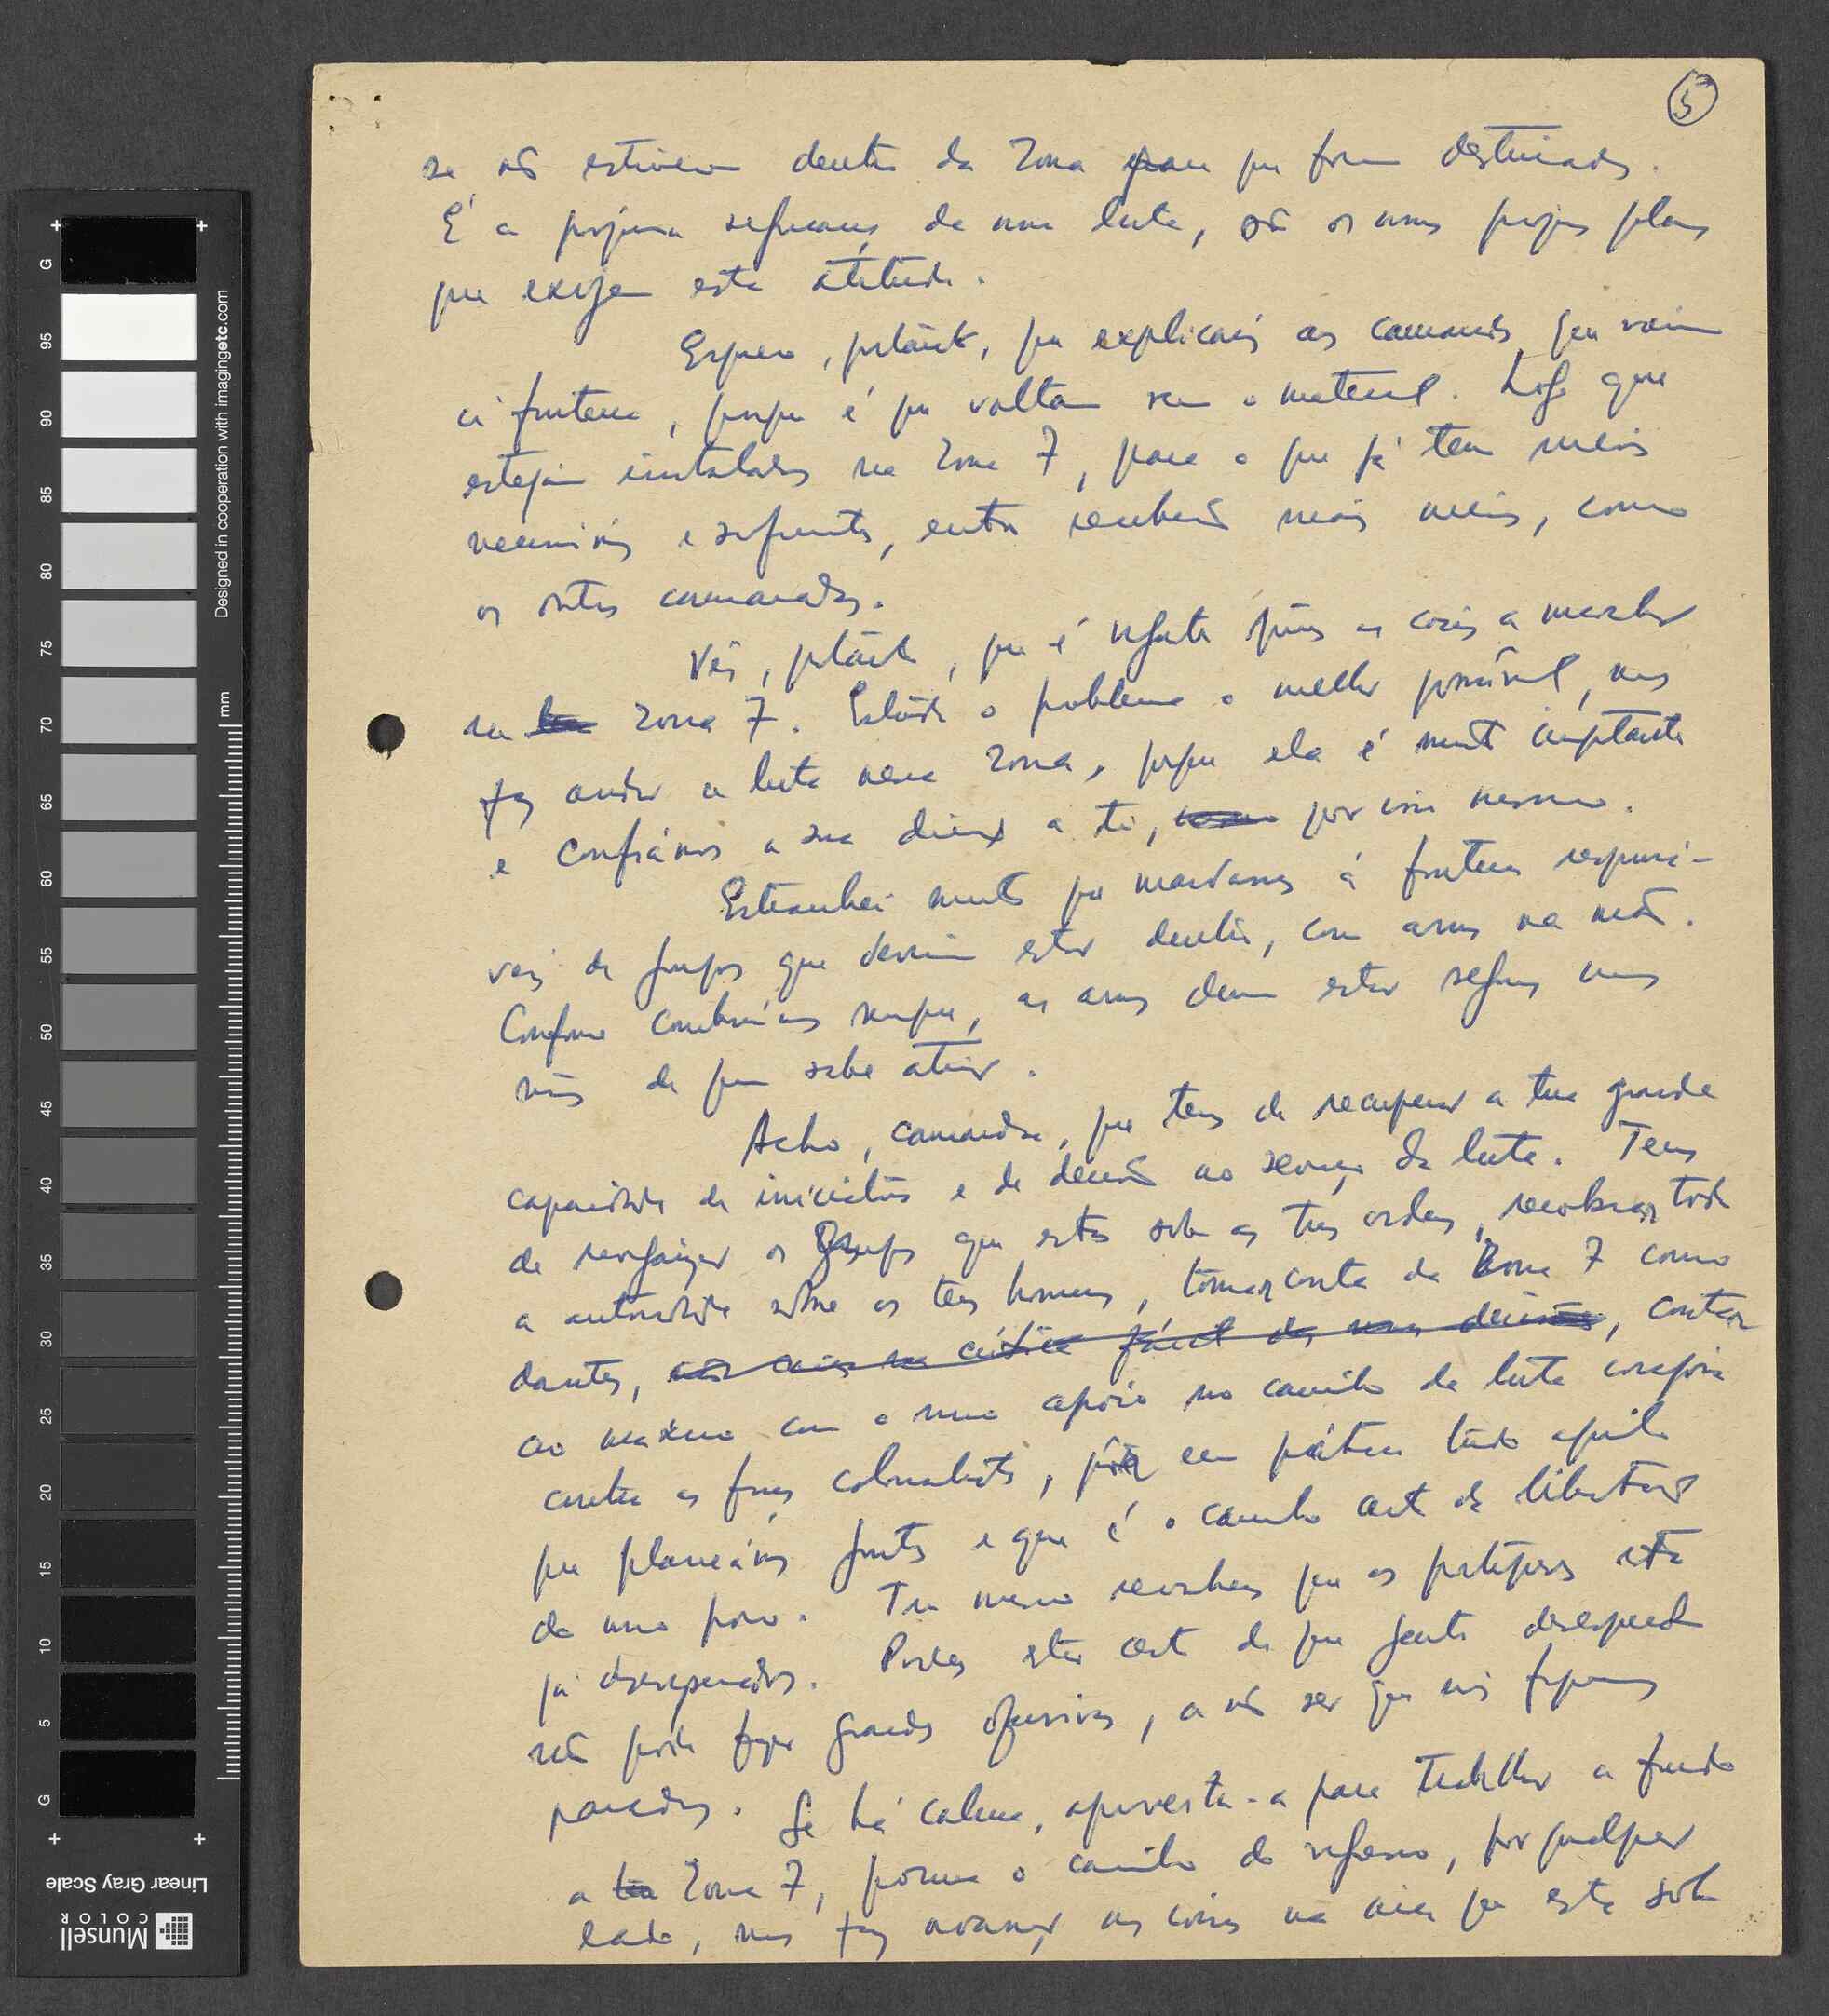 5
se não estiverem dentro da Zona para que foram destinados.
É a própria segurança da nossa luta, são os nossos próprios planos
que exigem esta atitude.
Espero, portanto, que explicarás aos camaradas que vieram
à fronteira, porque é que voltam sem o material. Logo que
estejam instalados na Zona 7, para o que já têm meios
necessários e suficientes, então receberão mais meios, como
os outros camaradas.
Vês, portanto, que é urgente pôres as coisas a marchar
na Zona 7. Estuda o problema o melhor possível, mas
faz andar a luta nessa Zona, porque ela é muito importante
e confiámos a sua direcção a ti, por isso mesmo.
Estranhei muito que mandasses à fronteira responsá-
veis de grupos que deveriam estar dentro, com armas na mão.
Conforme combinámos sempre, as armas devem estar seguras nas
mãos de quem sabe atirar.
Acho, camarada, que tens de recuperar a tua grande
capacidade de iniciativa e de decisão ao serviço da luta. Tens
de reorganizar os Grupos que estão sob as tuas ordens, recobrar toda
a autoridade sobre os teus homens, tomar conta da Zona 7 como
dantes, contar
ao máximo com o nosso apoio no caminho da luta corajosa
contra as forças colonialistas, pôr em prática tudo aquilo
que planeámos juntos e que é o caminho certo da libertação
do nosso povo. Tu mesmo reconheces que os portugueses estão
já desesperados. Podes estar certo de que gente desesperada
não pode fazer grandes ofensivas, a não ser que nós fiquemos
parados. Se há calma, aproveita-a para trabalhar a fundo
a Zona 7, procura o caminho do regresso, por qualquer
lado, mas faz avançar as coisas na área que está sob
Designed in cooperation with imagingetc.com
mm
+ +
G
95
90
85
80
75
70
65
60
55
50
45
40
35
30
25
20
15
10
5
G
+ +
Linear Gray Scale
Munsell
COLOR